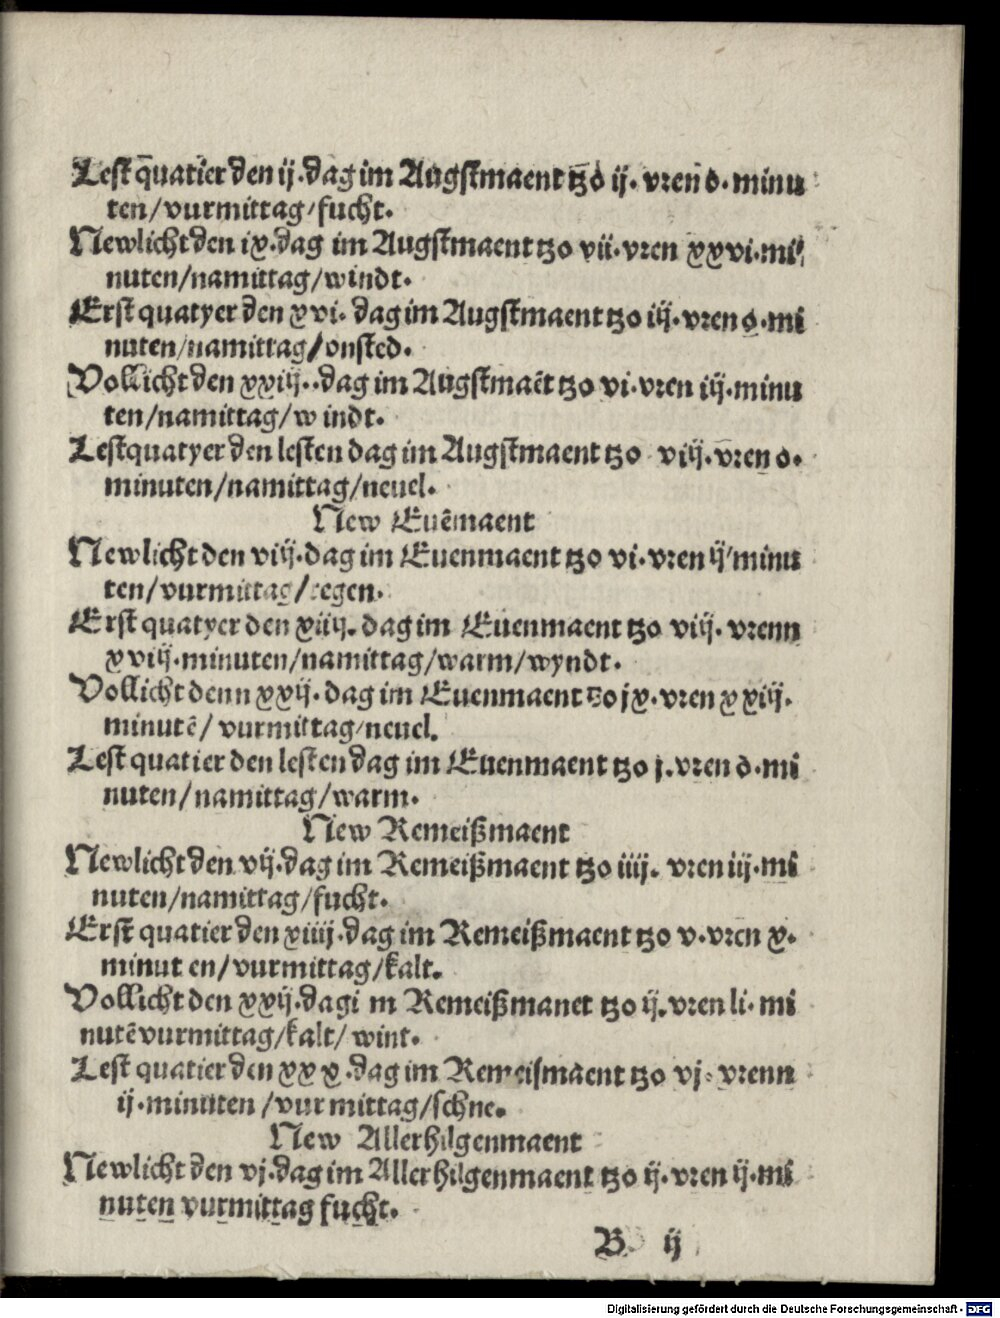 Lest quatier den ij. dag im Augstmaent tzo ij. vren o. minu
ten/vurmittag/fucht.
Newlicht den ix. dag im Augstmaent tzo vii. vren xxvi. mi
nuten/namittag/windt.
Erst quatyer den xvi. dag im Augstmaent tzo iij. vren o. mi
nuten/namittag/onsted.
Vollicht den xxiij.. dag im Augstmaēt tzo vi. vren iij. minu
ten/namittag/windt.
Lestquatyer den lesten dag im Augstmaent tzo viij. vren o.
minuten/namittag/neuel.
New Euēmaent
Newlicht den viij. dag im Euenmaent tzo vi. vren ij/minu
ten/vurmittag/regen.
Erst quatyer den xiiij. dag im Euenmaent tzo viij. vrenn
xviij. minuten/namittag/warm/wyndt.
Vollicht denn xxij. dag im Euenmaent tzo jx. vren xxiij.
minutē/ vurmittag/neuel.
Lest quatier den lesten dag im Euenmaent tzo j. vren o. mi
nuten/namittag/warm.
New Remeißmaent
Newlicht den vij. dag im Remeißmaent tzo iiij. vren iij. mi
nuten/namittag/fucht.
Erst quatier den xiiij. dag im Remeißmaent tzo v. vren x.
minut en/vurmittag/kalt.
Vollicht den xxij. dag i m Remeißmanet tzo ij. vren li. mi
nutē vurmittag/kalt/ wint.
Lest quatier den xxx. dag im Remeismaent tzo vj. vrenn
ij. minuten /vur mittag/schne.
New Allerhilgenmaent
Newlicht den vj. dag im Allerhilgenmaent tzo ij. vren ij. mi
nuten vurmittag fucht.
B ij
Digitalisierung gefördert durch die Deutsche Forschungsgemeinschaft - DFG